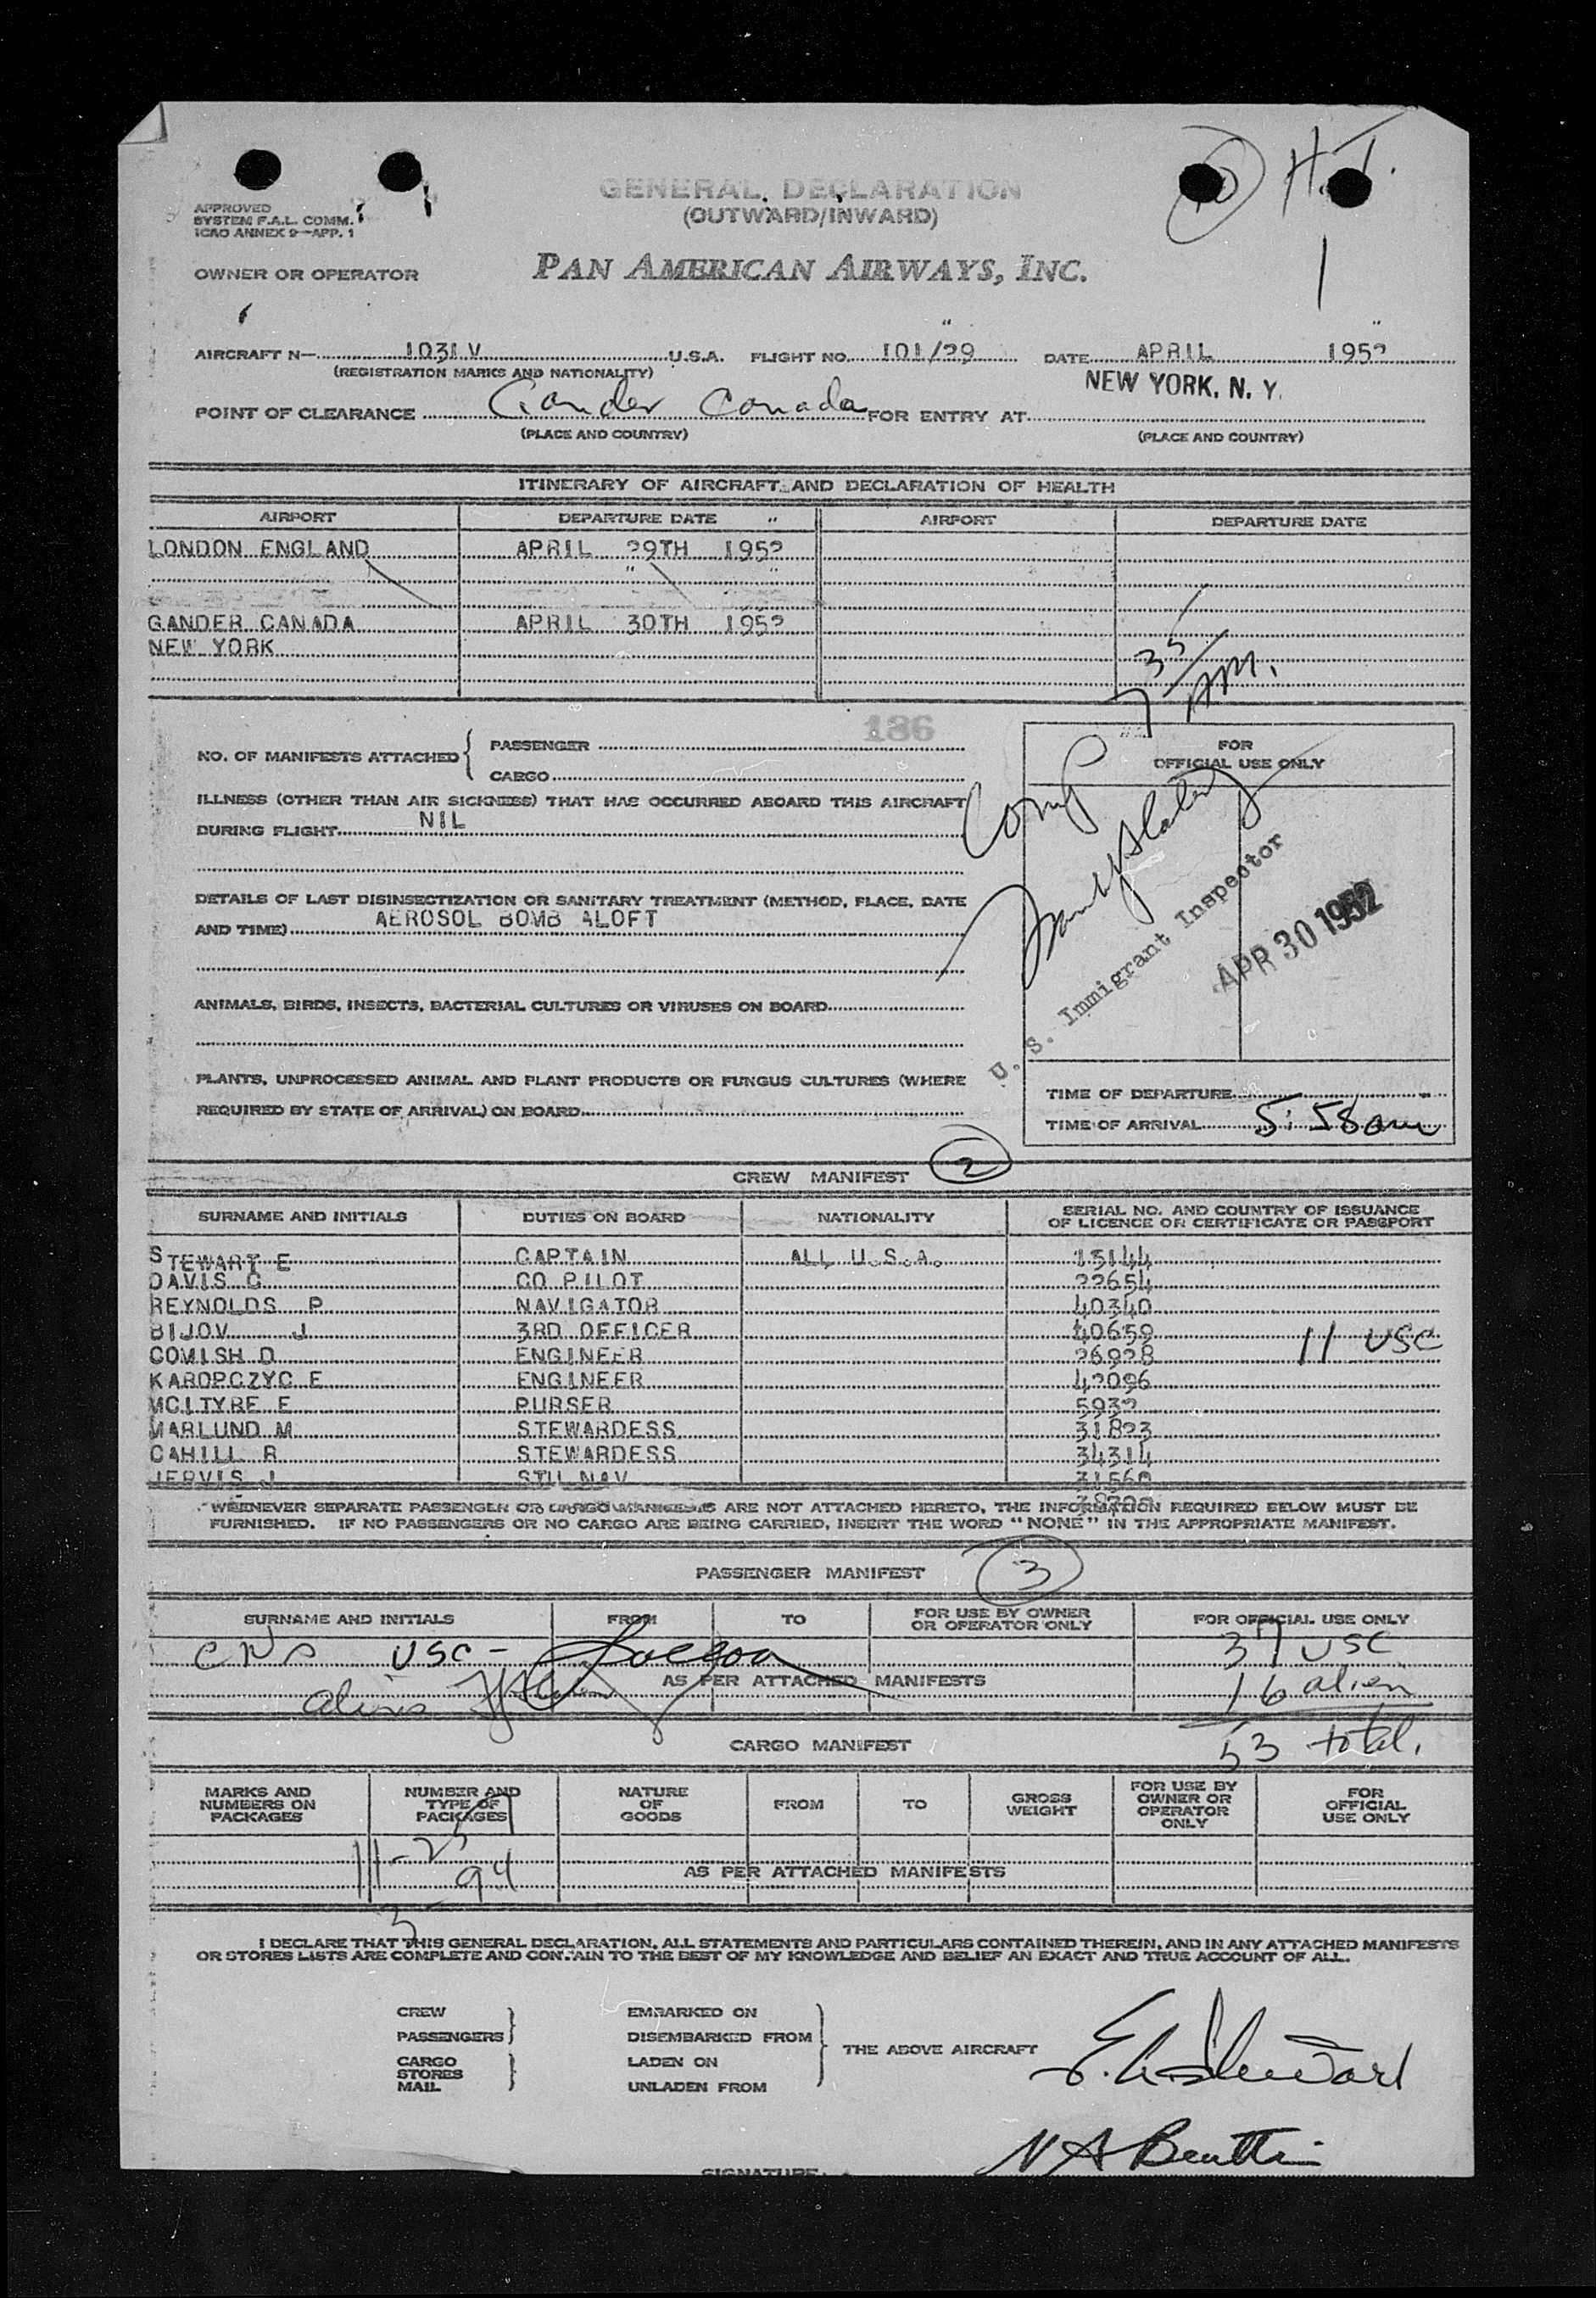 H.J.
GENERAL DECLARATION
(OUTWARD/INWARD)
APPROVED
SYSTEM F.A.L. COMM.
ICAO ANNEX 9—APP. 1
OWNER OR OPERATOR PAN AMERICAN AIRWAYS, INC.
AIRCRAFT N— 1031V U.S.A. FLIGHT NO. 101/29 DATE APRIL 1952
(REGISTRATION MARKS AND NATIONALITY)
NEW YORK, N. Y.
POINT OF CLEARANCE Gander Canada FOR ENTRY AT
(PLACE AND COUNTRY) (PLACE AND COUNTRY)
ITINERARY OF AIRCRAFT AND DECLARATION OF HEALTH
AIRPORT DEPARTURE DATE AIRPORT DEPARTURE DATE
LONDON ENGLAND APRIL 29TH 1952
GANDER CANADA APRIL 30TH 1952
NEW YORK
7 35 AM.
186
NO. OF MANIFESTS ATTACHED { PASSENGER
CARGO
FOR
OFFICIAL USE ONLY
ILLNESS (OTHER THAN AIR SICKNESS) THAT HAS OCCURRED ABOARD THIS AIRCRAFT
DURING FLIGHT NIL
DETAILS OF LAST DISINSECTIZATION OR SANITARY TREATMENT (METHOD, PLACE, DATE
AND TIME) AEROSOL BOMB ALOFT
U. S. Immigrant Inspector
APR 30 1952
ANIMALS, BIRDS, INSECTS, BACTERIAL CULTURES OR VIRUSES ON BOARD
PLANTS, UNPROCESSED ANIMAL AND PLANT PRODUCTS OR FUNGUS CULTURES (WHERE
REQUIRED BY STATE OF ARRIVAL) ON BOARD
TIME OF DEPARTURE
TIME OF ARRIVAL 5:58am
CREW MANIFEST 2
SURNAME AND INITIALS DUTIES ON BOARD NATIONALITY SERIAL NO. AND COUNTRY OF ISSUANCE
OF LICENCE OR CERTIFICATE OR PASSPORT
STEWART E CAPTAIN ALL U.S.A. 15144
DAVIS C CO PILOT 22654
REYNOLDS P NAVIGATOR 40340
BIJOV J 3RD OFFICER 40659
11 USC
COMISH D ENGINEER 26928
KAROPCZYC E ENGINEER 42096
MCITYRE E PURSER 5932
MARLUND M STEWARDESS 31823
CAHILL R STEWARDESS 34314
JERVIS J STU NAV 31560
WHENEVER SEPARATE PASSENGER OR CARGO MANIFESTS ARE NOT ATTACHED HERETO, THE INFORMATION REQUIRED BELOW MUST BE
FURNISHED. IF NO PASSENGERS OR NO CARGO ARE BEING CARRIED, INSERT THE WORD "NONE" IN THE APPROPRIATE MANIFEST.
PASSENGER MANIFEST 3
SURNAME AND INITIALS FROM TO FOR USE BY OWNER
OR OPERATOR ONLY FOR OFFICIAL USE ONLY
USC - 37 USC
AS PER ATTACHED MANIFESTS 16 alien
53 total.
CARGO MANIFEST
MARKS AND
NUMBERS ON
PACKAGES NUMBER AND
TYPE OF
PACKAGES NATURE
OF
GOODS FROM TO GROSS
WEIGHT FOR USE BY
OWNER OR
OPERATOR
ONLY FOR
OFFICIAL
USE ONLY
11-25
94
AS PER ATTACHED MANIFESTS
3
I DECLARE THAT THIS GENERAL DECLARATION, ALL STATEMENTS AND PARTICULARS CONTAINED THEREIN, AND IN ANY ATTACHED MANIFESTS
OR STORES LISTS ARE COMPLETE AND CONTAIN TO THE BEST OF MY KNOWLEDGE AND BELIEF AN EXACT AND TRUE ACCOUNT OF ALL.
CREW EMBARKED ON
PASSENGERS DISEMBARKED FROM
THE ABOVE AIRCRAFT
CARGO LADEN ON
STORES
MAIL UNLADEN FROM
E.A. Stewart
SIGNATURE